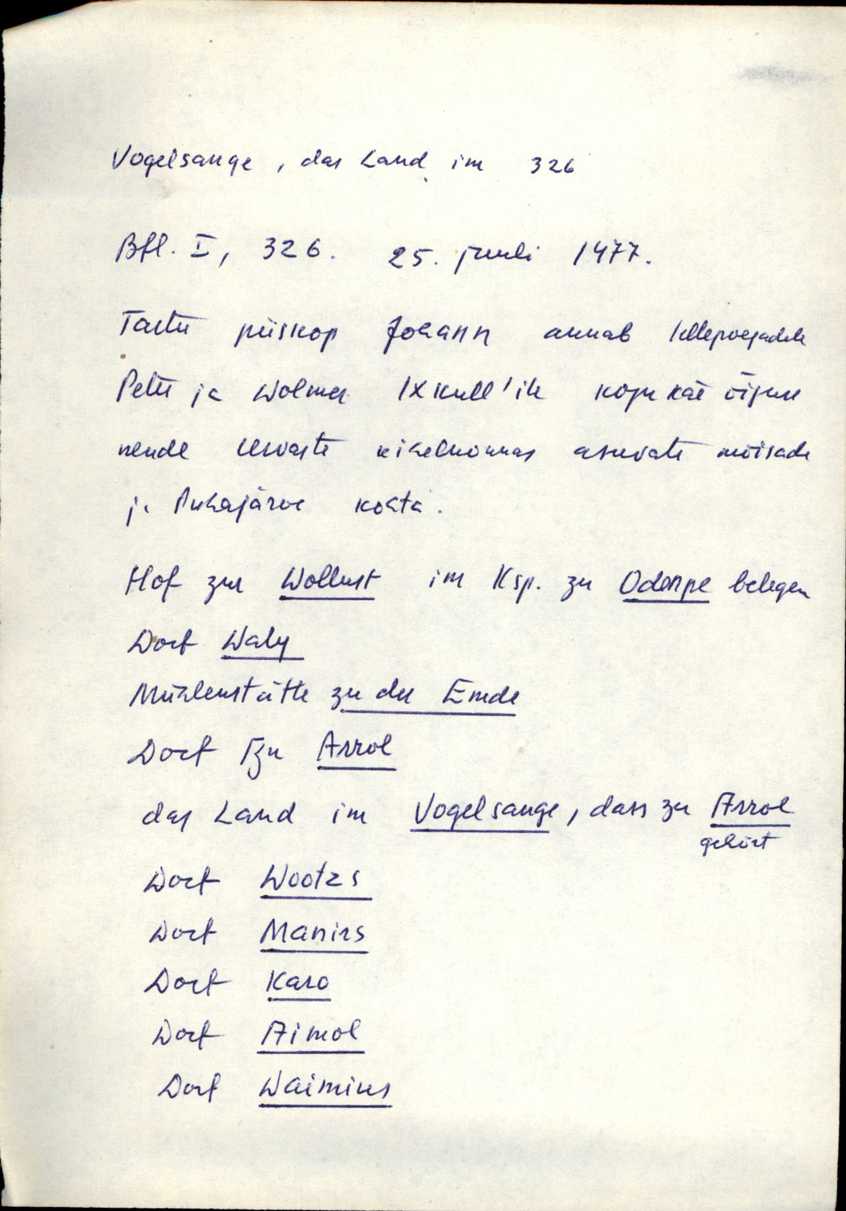 Vogelsange, das Land im 326
Bfl. I, 326. 25. juuli 1477.
Tartu piiskop Johann annab lellepoegadele
Peter ja Wolmer Ixkull'ile kogu käe õiguse
nende Urvaste kihelkonnas asuvate mõisade
ja Pühajärve kohta.
Hof zur Wollust im Ksp. zu Odenpe belegen
Dorf Waly
Mühlenstätte zu der Emde
Dorf zu Arrol
das Land im Vogelsange, dass zu Arrol
gehört
Dorf Wootzs
Dorf Manirs
Dorf Karo
Dorf Aimol
Dorf Waimius